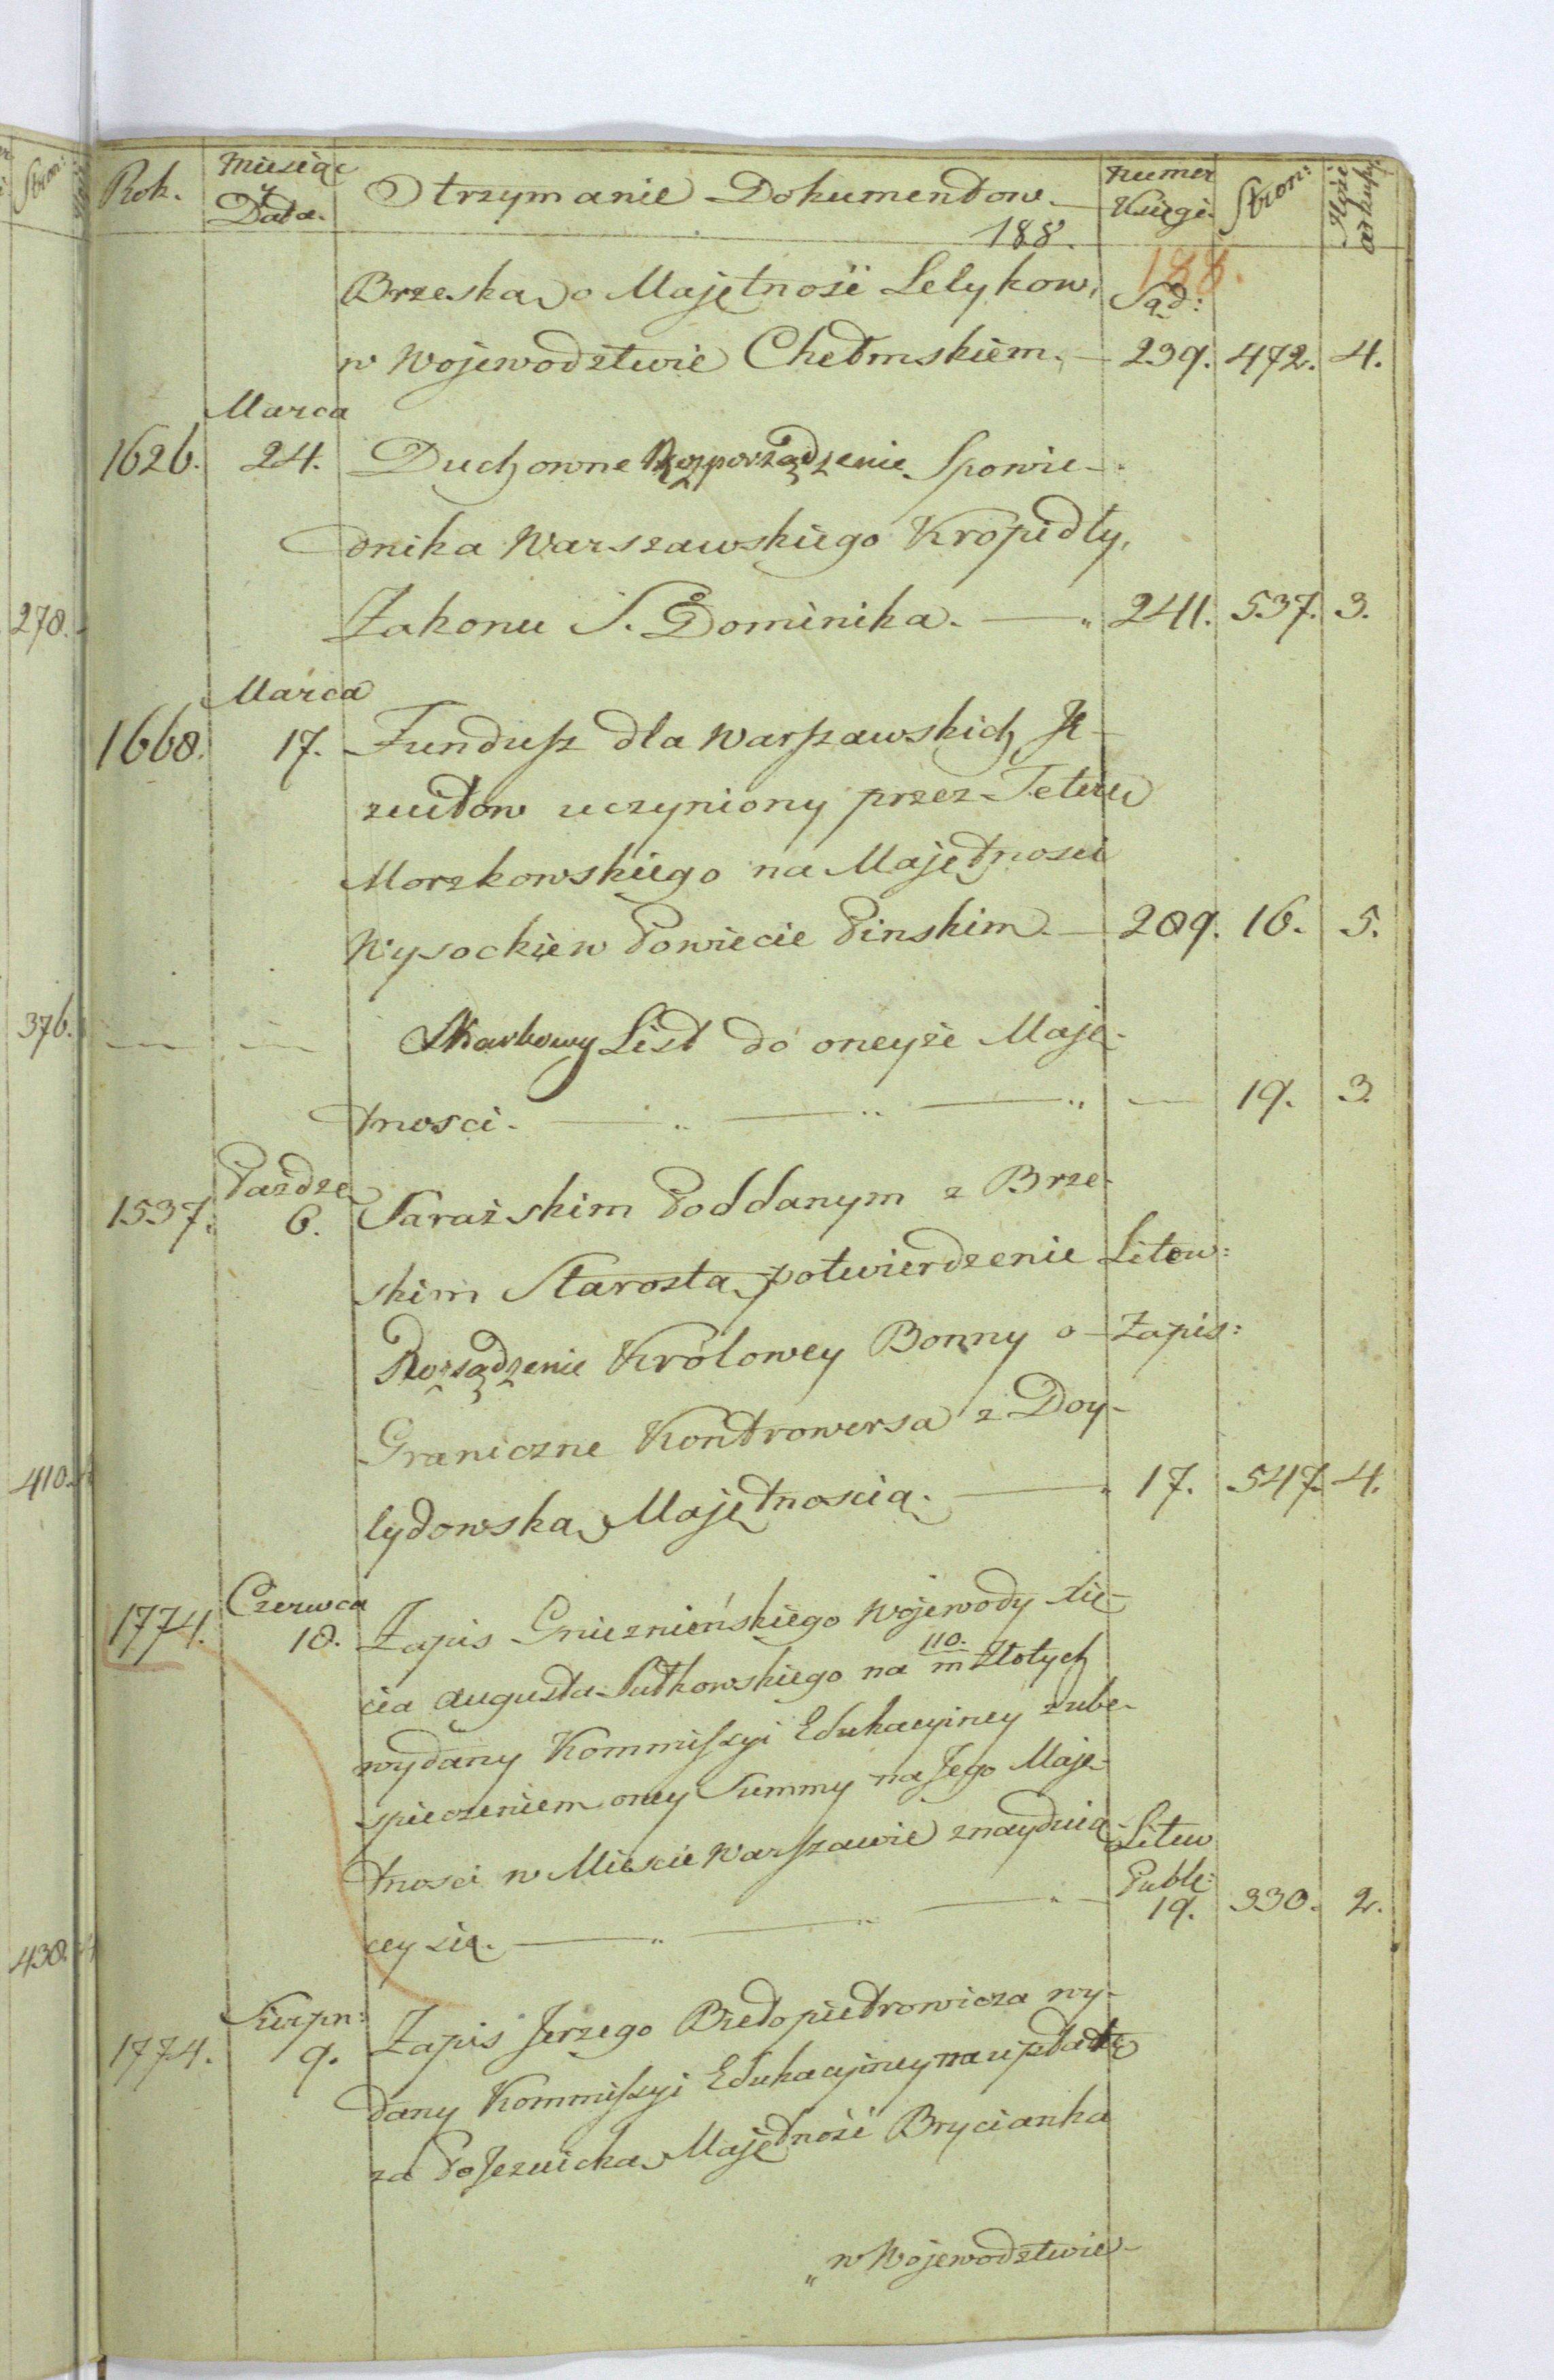 Rok. Miesiąc y Data. Otrzymanie Dokumentow. Numer Księgi. Stron: Ilość arkusz:
188.
188.
Brzeską o Majętność Lelykow, Sąd:
w Wojewodztwie Chełmskiem. 239. 472. 4.
Marca
1626. 24. Duchowne Rozporządzenie Spowie-
dnika Warszawskiego Kropidły,
Zakonu S. Dominika. 241. 537. 3.
Marca
1668. 17. Fundusz dla Warszawskich Je-
zuitow uczyniony przez Teterę
Morzkowskiego na Majętnosci
Wysockie w Powiecie Pinskim. 289. 16. 5.
Skarbowy List do oneyże Maję-
tnosci. 19. 3.
Paźdze
1537. 6. Saraźskim Poddanym z Brze-
skim Starostą potwierdzenie Litow:
Rozsądzenie Krolowey Bonny o Zapis:
Graniczne Kontrowersa z Doy-
lydowską Majętnoscią. 17. 547. 4.
Czerwca
1774. 18. Zapis Gnieznieńskiego Wojewody Xię-
cia Augusta Sułkowskiego na 110. m Złotych
wydany Kommissyi Edukacyiney z ube-
spieczeniem oney Summy na Jego Maję-
tnosci w Miescie Warszawie znayduią- Litew
Publ:
cey się. 19. 330. 2.
Sierpn:
1774. 9. Zapis Jerzego Biełopietrowicza wy-
dany Kommissyi Edukacyiney na upłatę
za PoJezuicką Majętność Brycianka
„w Wojewodztwie
278.
376.
410.
438.